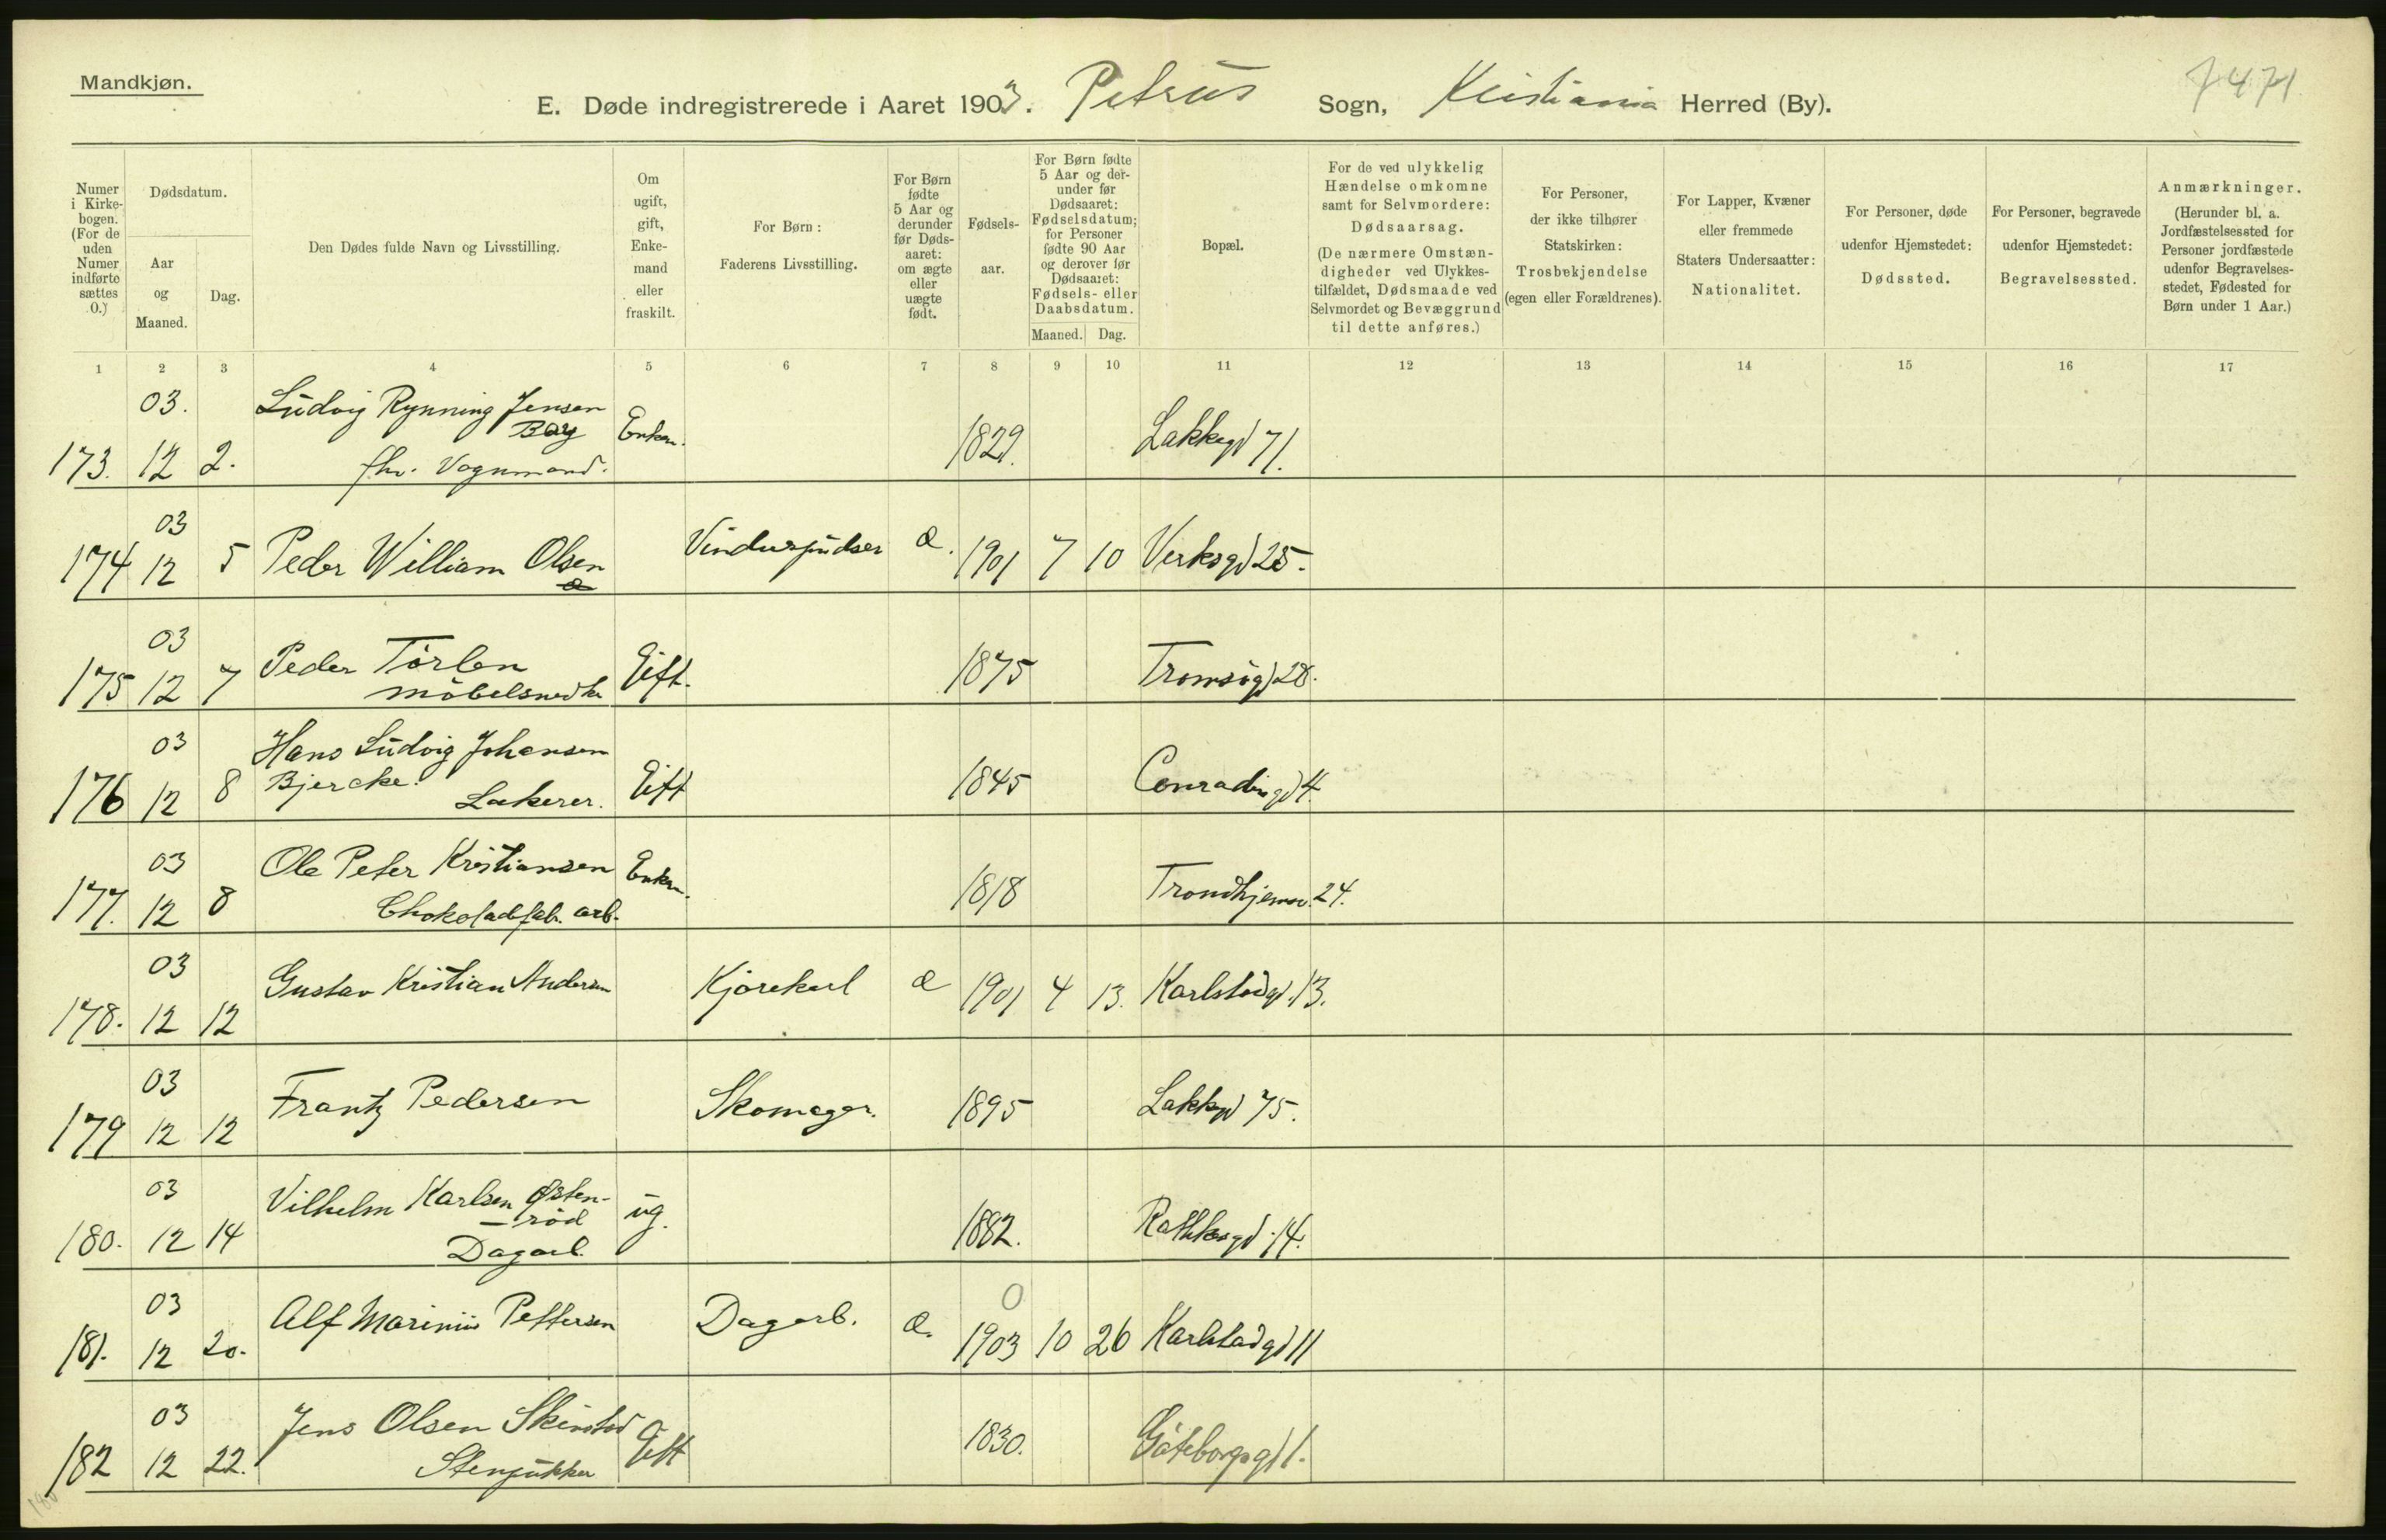 Mandkjøn.
E. Døde indregistrerede i Aaret 1903. Petrus Sogn, Kristiania Herred (By).
7471
Numer i Kirkebogen. (For de uden Numer indførte sættes 0.)
Dødsdatum.
Aar og Maaned.
Dag.
Den Dødes fulde Navn og Livsstilling.
Om ugift, gift, Enkemand eller fraskilt.
For Børn: Faderens Livsstilling.
For Børn fødte 5 Aar og derunder før Dødsaaret: om ægte eller uægte født.
Fødselsaar.
For Børn fødte 5 Aar og derunder før Dødsaaret: Fødselsdatum; for Personer fødte 90 Aar og derover før Dødsaaret: Fødsels- eller Daabsdatum.
Maaned. Dag.
Bopæl.
For de ved ulykkelig Hændelse omkomne samt for Selvmordere: Dødsaarsag. (De nærmere Omstændigheder ved Ulykkestilfældet, Dødsmaade ved Selvmordet og Bevæggrund til dette anføres.)
For Personer, der ikke tilhører Statskirken: Trosbekjendelse (egen eller Forældrenes).
For Lapper, Kvæner eller fremmede Staters Undersaatter: Nationalitet.
For Personer, døde udenfor Hjemstedet: Dødssted.
For Personer, begravede udenfor Hjemstedet: Begravelsessted.
Anmærkninger. (Herunder bl. a. Jordfæstelsessted for Personer jordfæstede udenfor Begravelsesstedet, Fødested for Børn under 1 Aar.)
1 2 3 4 5 6 7 8 9 10 11 12 13 14 15 16 17
03. Ludvig Rynning Jensen
Bay Enkem.
173. 12 2. fhv. Vognmand. 1829. Lakkegd 71.
03
174 12 5 Peder William Olsen Vinduspudser æ. 1901 7 10 Verksgd 25.
03
175 12 7 Peder Törlen Gift. 1875 Tromsögd 28.
möbelsnedker
03 Hans Ludvig Johansen
176 12 8 Bjercke. Lakerer. Gift 1845 Conradisgd 4.
03 Ole Peter Kristiansen Enkem.
177. 12 8 Chokoladefab. arb. 1818 Trondhjemsv. 24.
03
178. 12 12 Gustav Kristian Andersen Kjörekarl æ 1901 4 13. Karlstadgd. 13.
03
179 12 12 Frantz Pedersen Skomager. 1895 Lakkegd 75.
03 Vilhelm Karlsen Østen-
röd ug.
180. 12 14 Dagarb. 1882. Rathkesgd. 14.
03 0
181. 12 20. Alf Marinius Pettersen Dagarb. æ. 1903 10 26 Karlstadgd 11
03 Jens Olsen Skinstad Gift
182 12 22. Stenpukker 1830. Göteborgsgd 1.